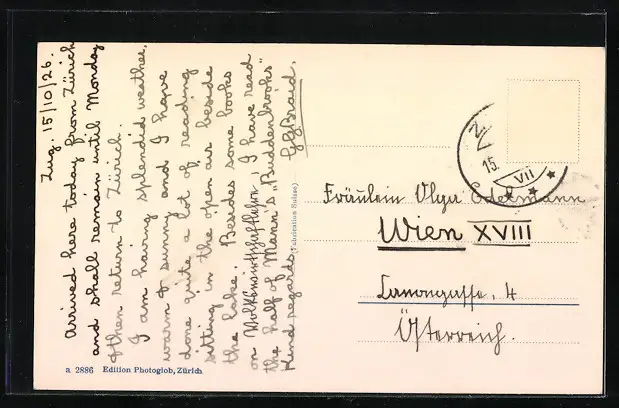 Zug. 15/10/26.
Arrived here today from Zürich
and shall remain until Monday
& then return to Zürich.
I am having splendid weather,
warm & sunny and I have
done quite a lot of reading
sitting in the open air beside
the lake. Besides some books
on Volkswirtschaftslehre, I have read
the half of Mann's "Buddenbrooks"
Kind regards,
15.
VII
Fräulein Olga Edelmann
Wien XVIII
4
Österreich.
Fabrication Suisse)
a 2886 Edition Photoglob, Zürich